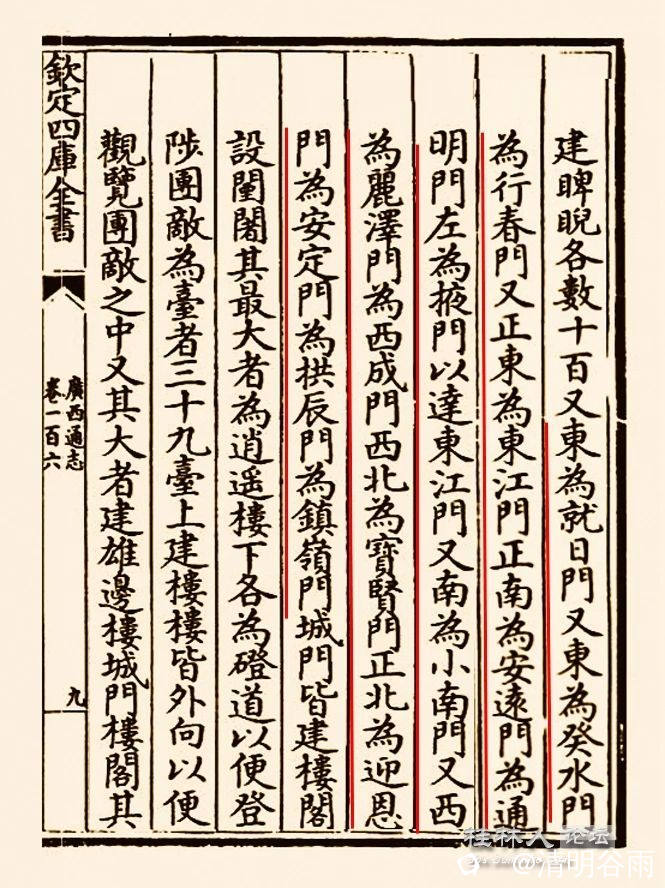 建睥睨各數十百又東為就日門又東為癸水門
為行春門又正東為東江門正南為安遠門為通
明門左為掖門以達東江門又南為小南門又西
為麗澤門為西成門西北為寶賢門正北為迎恩
門為安定門為拱辰門為鎮嶺門城門皆建樓閣
設闉闍其最大者為逍遥樓下各為磴道以便登
陟團敵為臺者三十九臺上建樓樓皆外向以便
觀覽團敵之中又其大者建雄邊樓城門樓閣其
欽定四庫全書
廣西通志
卷一百六
九
桂林人论坛
@清明谷雨